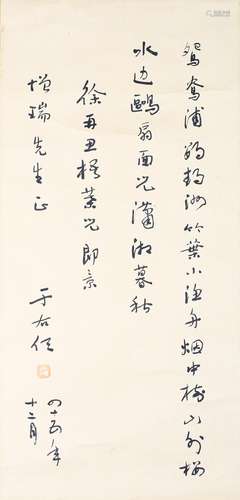 鴛鴦浦鸚鵡洲竹葉小漁舟烟中樹山外樓
水边鷗扇面兒瀟湘暮秋
徐再思梧葉兒即景
增瑞先生正
于右任
四十五年
十二月